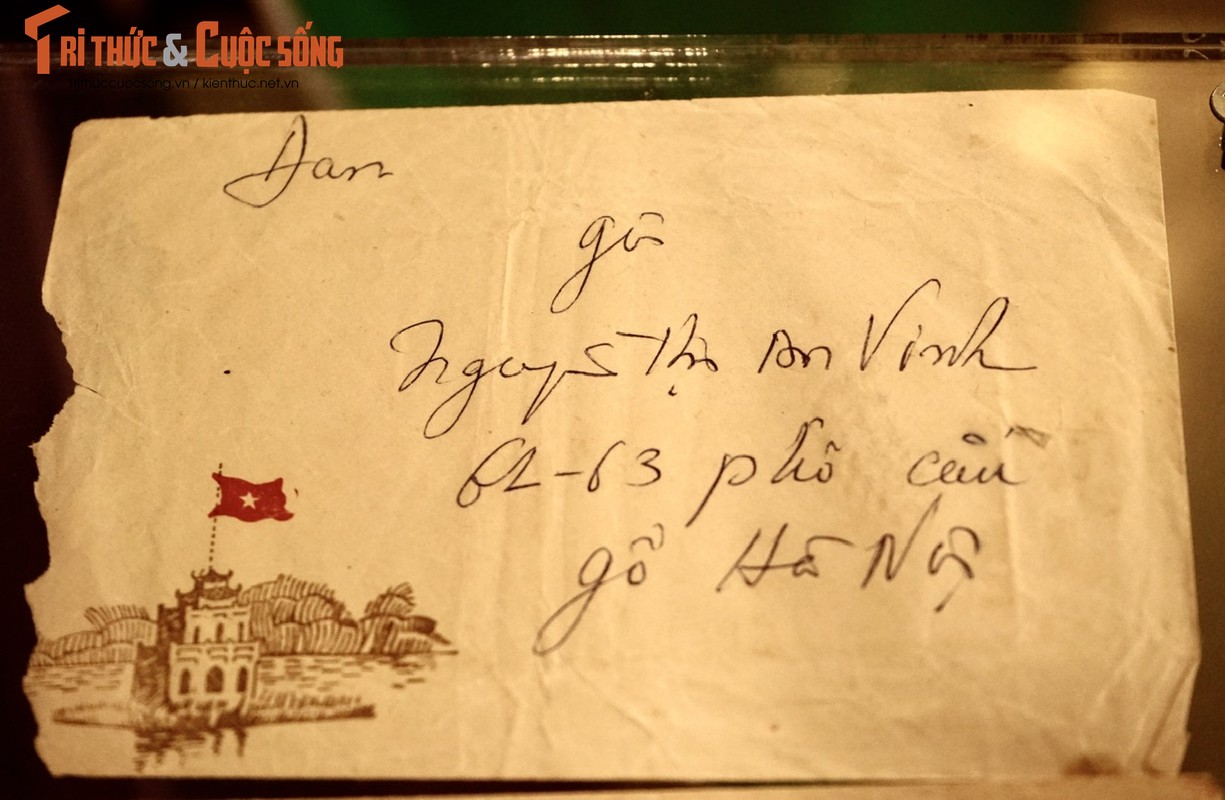 TRI THỨC & CUỘC SỐNG
trithuccuocsong.vn / kienthuc.net.vn
Đan
gửi
Nguyễn Thị An Vinh
61-63 phố cầu
gỗ Hà Nội